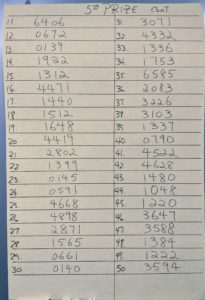 5th PRIZE Cont
11. 6406 31. 3071
12. 0672 32. 4332
13. 0139 33. 1336
14. 1922 34. 1753
15. 1312 35. 6585
16. 4471 36. 2083
17. 1440 37. 3226
18. 1512 38. 3103
19. 1648 39. 1337
20. 4419 40. 0790
21. 2802 41. 4522
22. 1399 42. 4628
23. 0145 43. 1480
24. 0591 44. 1048
25. 4668 45. 1220
26. 4898 46. 3647
27. 2871 47. 3588
28. 1565 48. 1384
29. 0661 49. 1222
30. 0140 50. 3594